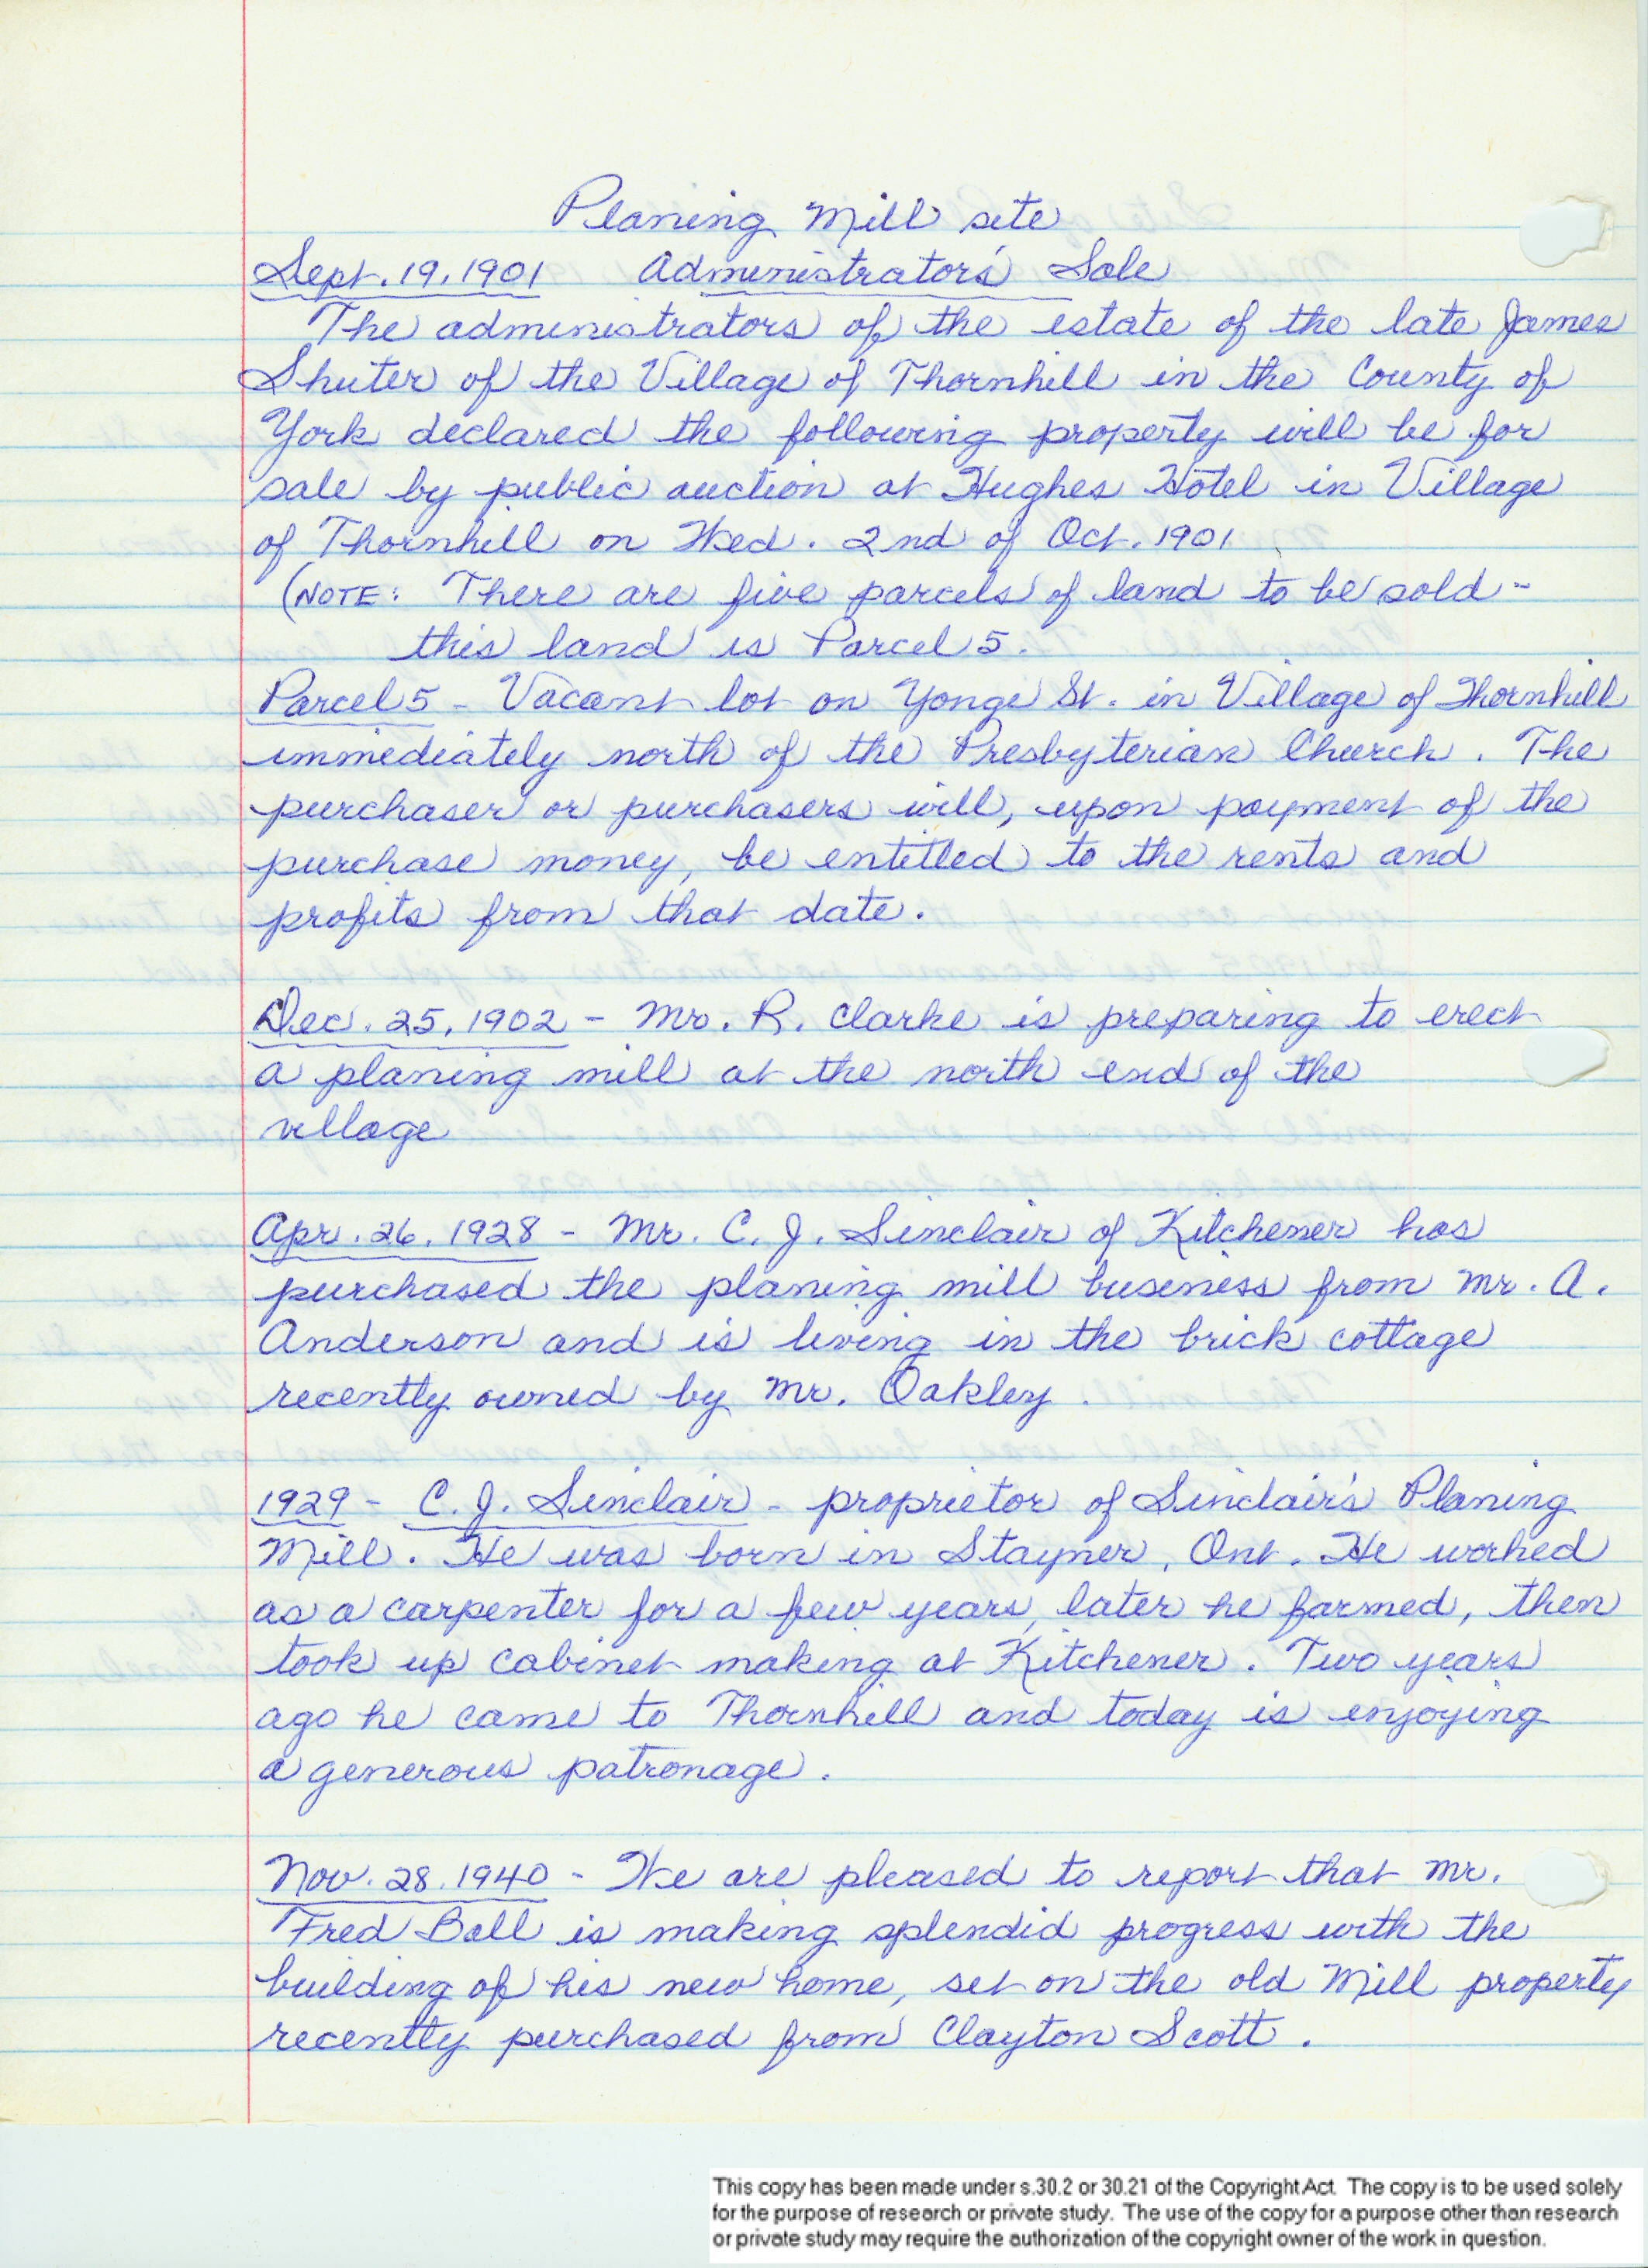 Planing Mill site
Sept. 19, 1901 Administrators' Sale
The administrators of the estate of the late James
Shuter of the Village of Thornhill in the County of
York declared the following property will be for
sale by public auction at Hughes Hotel in Village
of Thornhill on Wed. 2nd of Oct. 1901
(NOTE: There are five parcels of land to be sold -
this land is Parcel 5.
Parcel 5 - Vacant lot on Yonge St. in Village of Thornhill
immediately north of the Presbyterian Church. The
purchaser or purchasers will, upon payment of the
purchase money, be entitled to the rents and
profits from that date.
Dec. 25, 1902 - Mr. R. Clarke is preparing to erect
a planing mill at the north end of the
village
Apr. 26, 1928 - Mr. C. J. Sinclair of Kitchener has
purchased the planing mill business from Mr. A.
Anderson and is living in the brick cottage
recently owned by Mr. Oakley.
1929 - C. J. Sinclair - proprietor of Sinclair's Planing
Mill. He was born in Stayner, Ont. He worked
as a carpenter for a few years, later he farmed, then
took up cabinet making at Kitchener. Two years
ago he came to Thornhill and today is enjoying
a generous patronage.
Nov. 28, 1940 - We are pleased to report that Mr.
Fred Ball is making splendid progress with the
building of his new home, set on the old Mill property
recently purchased from Clayton Scott.
This copy has been made under s.30.2 or 30.21 of the Copyright Act. The copy is to be used solely
for the purpose of research or private study. The use of the copy for a purpose other than research
or private study may require the authorization of the copyright owner of the work in question.